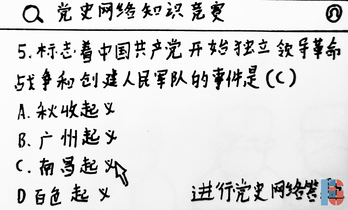 党史网络知识竞赛
5.标志着中国共产党开始独立领导革命
战争和创建人民军队的事件是(C)
A.秋收起义
B.广州起义
C.南昌起义
D百色起义
进行党史网络答题